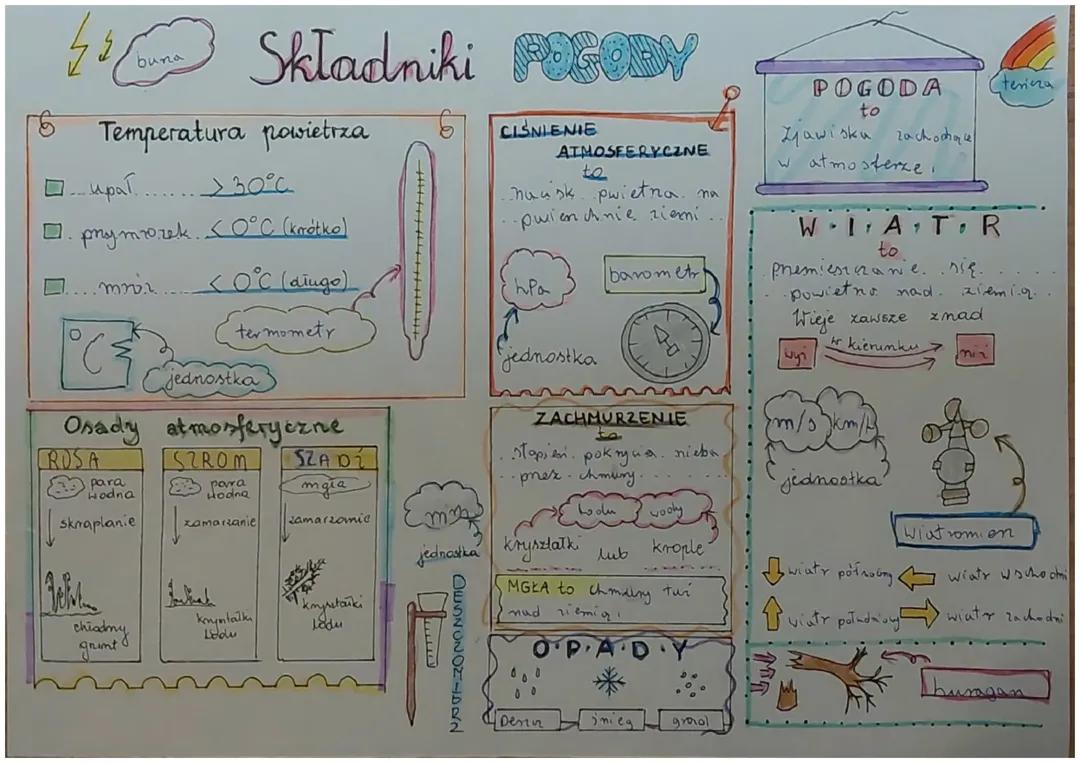 burza
Składniki POGODY
tęncza
POGODA
to
Zjawiska zachodzące
w atmosferze.
Temperatura powietrza
upał > 30°C
przymrozek < 0°C (krótko)
mróz < 0°C (długo)
termometr
°C
jednostka
CIŚNIENIE
ATMOSFERYCZNE
to
nacisk powietrza na
powierzchnię ziemi
hPa
barometr
jednostka
W·I·A·T·R
to
przemieszczanie się
powietrza nad ziemią.
Wieje zawsze znad
wyż w kierunku niż
m/s km/h
jednostka
Wiatromierz
wiatr północny wiatr wschodni
wiatr południowy wiatr zachodni
huragan
Osady atmosferyczne
ROSA SZRON SZADŹ
para wodna para wodna mgła
skraplanie zamarzanie zamarzanie
chłodny grunt kryształki lodu kryształki lodu
mm
jednostka
DESZCZOMIERZ
ZACHMURZENIE
to
stopień pokrycia nieba
przez chmury.
lodu wody
kryształki lub krople
MGŁA to chmury tuż
nad ziemią.
O·P·A·D·Y
Deszcz śnieg grad